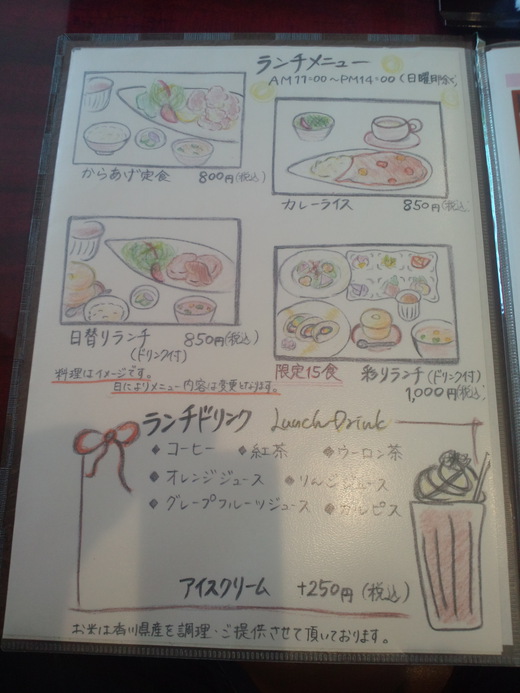 ランチメニュー
AM11:00～PM14:00(日曜日除く)
からあげ定食 800円(税込)
カレーライス 850円(税込)
日替りランチ 850円(税込)
(ドリンク付)
料理はイメージです。
日によりメニュー内容は変更となります。
限定15食 彩りランチ(ドリンク付)
1,000円(税込)
ランチドリンク Lunch Drink
◆コーヒー ◆紅茶 ◆ウーロン茶
◆オレンジジュース ◆りんごジュース
◆グレープフルーツジュース ◆カルピス
アイスクリーム +250円(税込)
お米は香川県産を調理・ご提供させて頂いております。